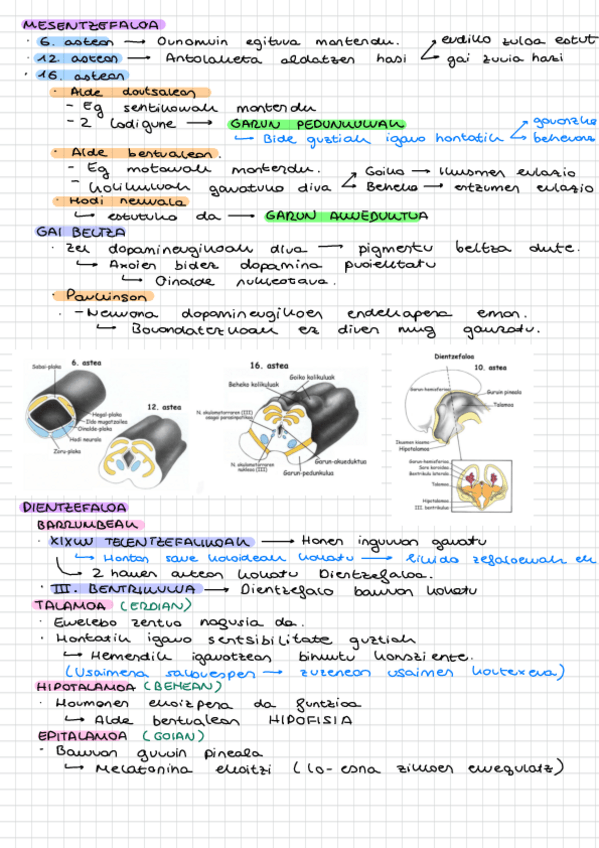 MESENTZEFALOA
· 6. astean → Oinarrizko egitura mantendu. erdiko zuloa estut
· 12. astean → Antolaketa aldatzen hasi gai zuria hasi
· 16. astean
· Alde dortsalean
- Eg sentikorrak mantendu
- 2 lodigune → GARUN PEDUNKULUAK
↳ Bide guztiak igaro hontatik beherans
· Alde bentralean.
- Eg motorrak mantendu. Goiko → Ikusmen erlazio
- Kolikuluak garatuko dira Beheko → entzumen erlazio
· Hodi neurala
↳ estutuko da → GARUN AKUEDUKTUA
GAI BELTZA
· Zel dopaminergikoak dira → pigmentu beltza dute.
↳ Axoien bidez dopamina proiektatu
↳ Oinalde nukleotara.
· Parkinson
- Neurona dopaminergikoen endekapera eman.
↳ Borondatezkoak ez diren mug garatu.
6. astea
Sabai-plaka
Hegal-plaka
Ildo mugatzailea
Oinalde-plaka
Hodi neurala
Zoru-plaka
12. astea
16. astea
Goiko kolikuluak
Beheko kolikuluak
N. okulomotorraren (III)
nukleoa (III)
Garun-akueduktua
Garun-pedunkulua
Dientzefaloa
10. astea
Garun-hemisferioa
Guruin pineala
Talamoa
Ikusmen kiasma
Hipotalamoa
Garun-hemisferioa
Sare koroidea
Bentrikulu laterala
Talamoa
Hipotalamoa
III. bentrikulua
DIENTZEFALOA
BARRUNBEAK
· XIXKU TELENTZEFALIKOAK → Honen inguruan garatu
↳ Hontan sare koroideak kokatu → likido zefaloerrak ek
↳ 2 hauen artean kokatu Dientzefaloa.
· III. BENTRIKULUA → Dientzefalo barruan kokatu
TALAMOA (ERDIAN)
· Errelebo zentro nagusia da.
· Hontatik igaro sentsibilitate guztiak
↳ Hemendik igarotzean bihurtu konsziente.
(Usaimena salbuespen → zuzenean usaimen kortexera)
HIPOTALAMOA (BEHEAN)
· Hormonen ekoizpena da funtzioa
↳ Alde bentralean HIPOFISIA
EPITALAMOA (GOIAN)
· Barruan guruin pineala
↳ Melatonina ekoitzi (lo-esna zikloen erregulatz)